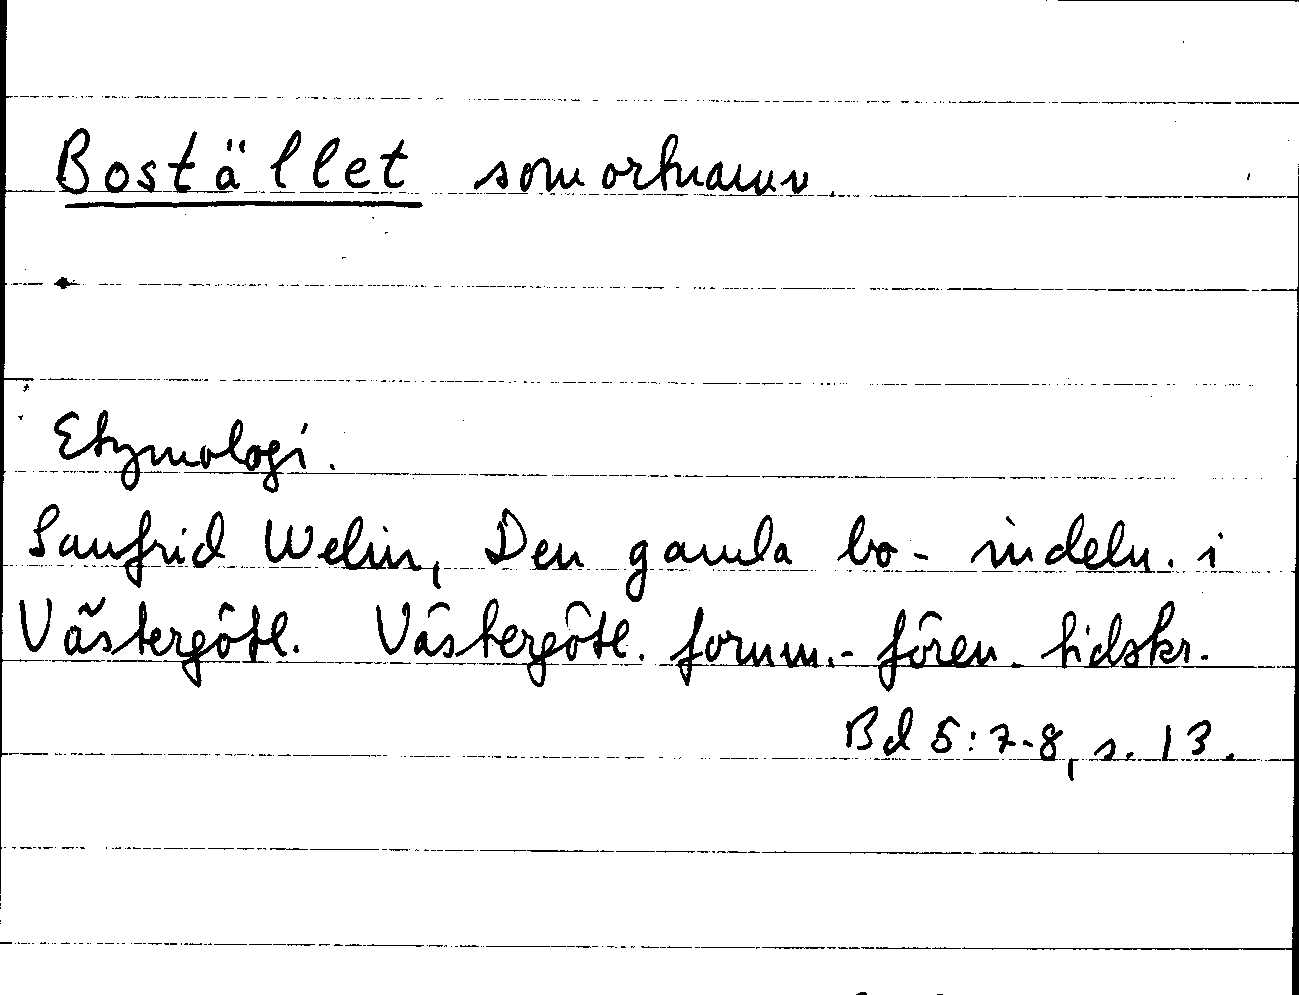 Bostället som ortnamn.
Etymologi.
Sanfrid Welin, Den gamla bo-indeln. i
Västergötl. Västergötl. fornm.-fören. tidskr.
Bd 5:7-8, s. 13.